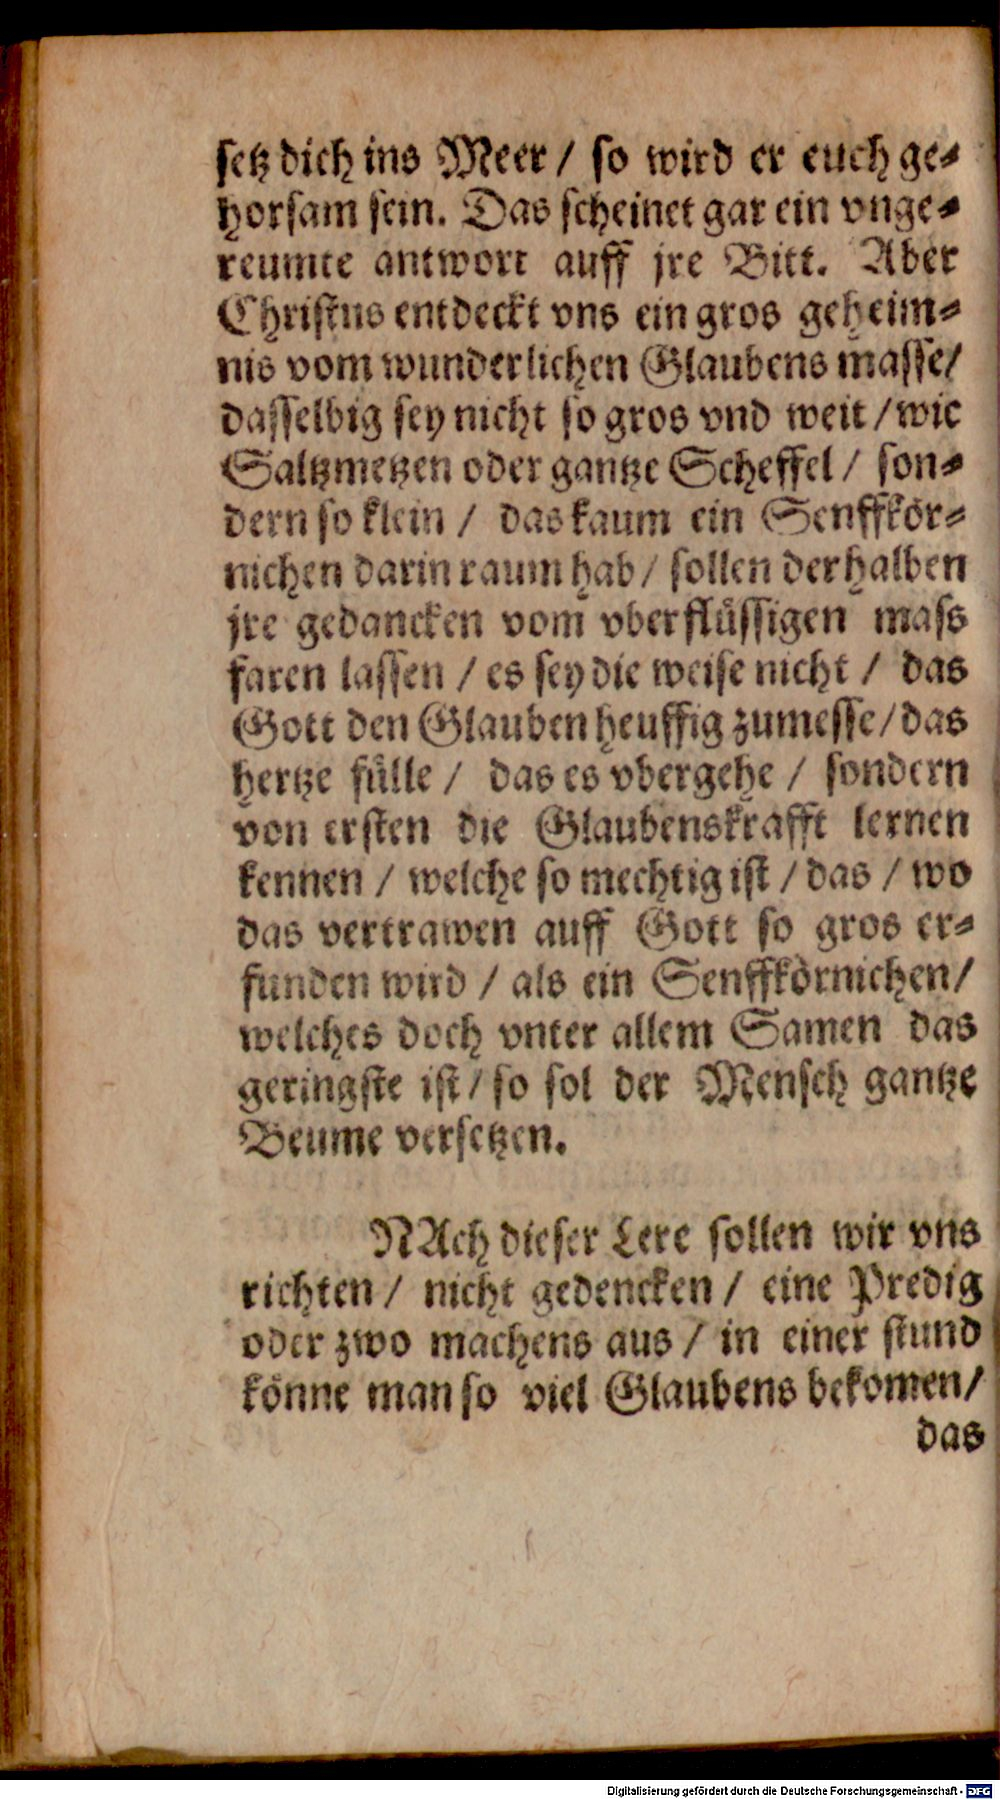 setz dich ins Meer / so wird er euch ge-
horsam sein. Das scheinet gar ein vnge-
reumte antwort auff jre Bitt. Aber
Christus entdeckt vns ein gros geheim-
nis vom wunderlichen Glaubens masse/
dasselbig sey nicht so gros vnd weit / wie
Saltzmetzen oder gantze Scheffel / son-
dern so klein / das kaum ein Senffkör-
nichen darin raum hab / sollen derhalben
jre gedancken vom vberflüssigen mass
faren lassen / es sey die weise nicht / das
Gott den Glauben heuffig zumesse / das
hertze fülle / das es vbergehe / sondern
von ersten die Glaubenskrafft lernen
kennen / welche so mechtig ist / das / wo
das vertrawen auff Gott so gros er-
funden wird / als ein Senffkörnichen /
welches doch vnter allem Samen das
geringste ist / so sol der Mensch gantze
Beume versetzen.
NAch dieser Lere sollen wir vns
richten / nicht gedencken / eine Predig
oder zwo machens aus / in einer stund
könne man so viel Glaubens bekomen /
das
Digitalisierung gefördert durch die Deutsche Forschungsgemeinschaft - DFG